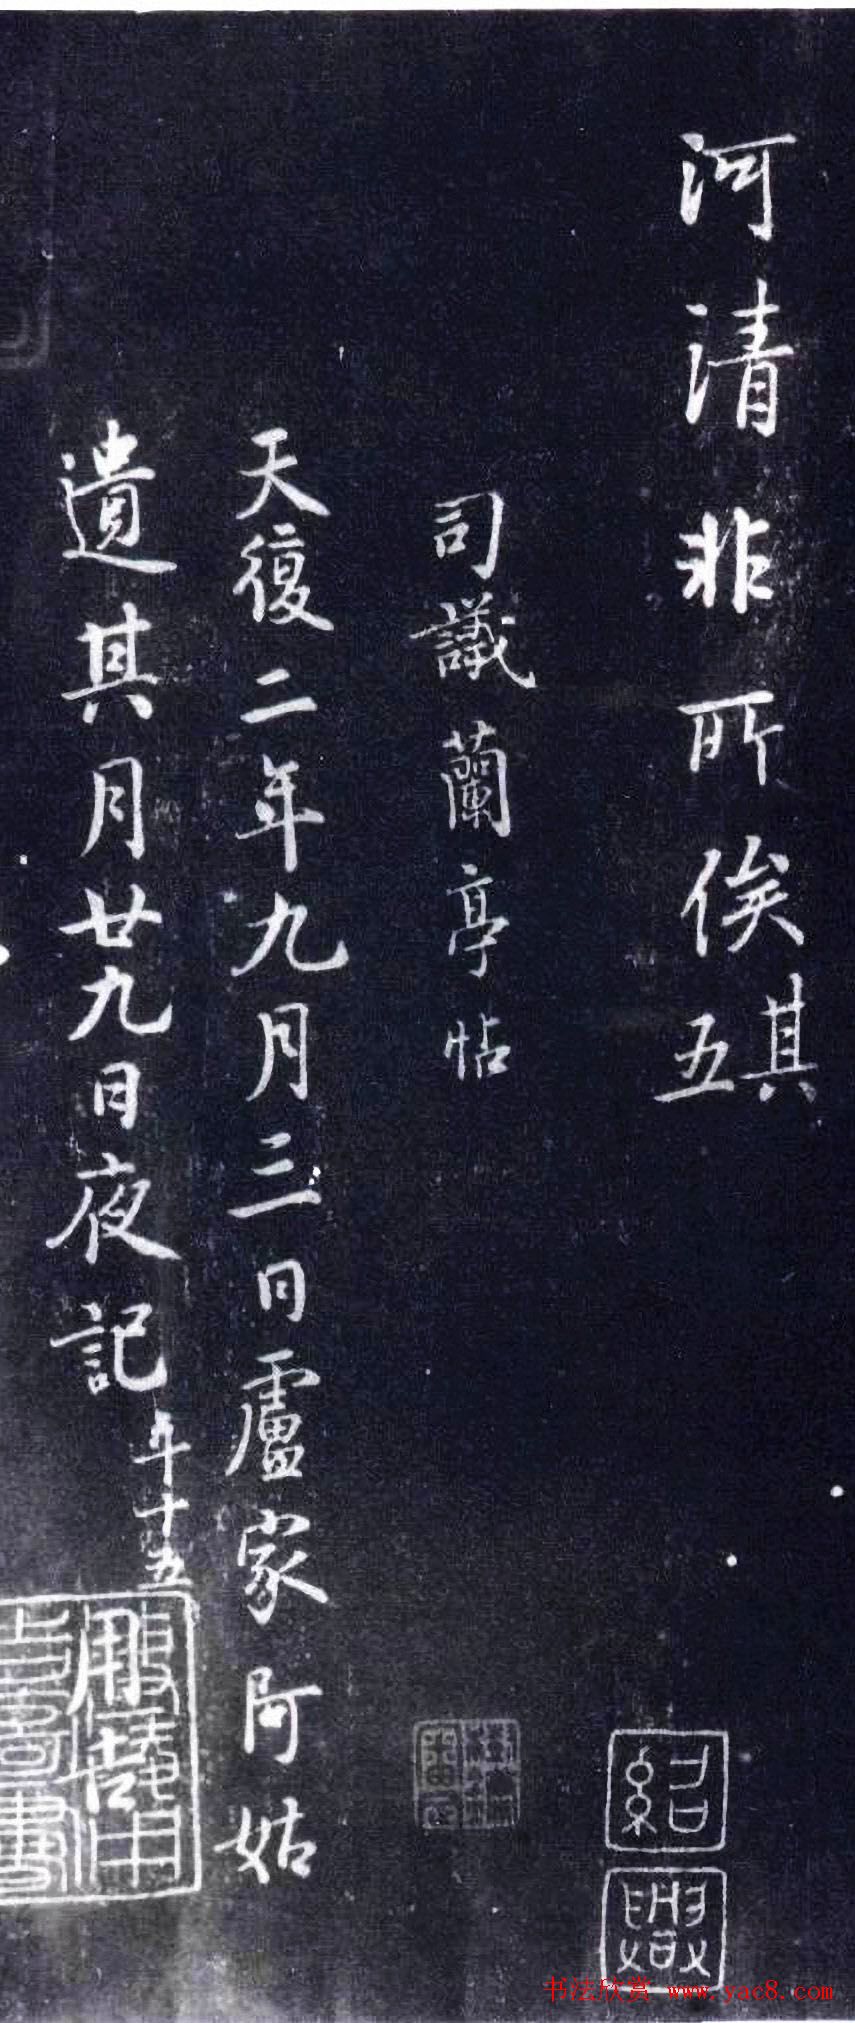 河清非所俟其五
司議蘭亭帖
天復二年九月三日盧家阿姑
遺其月廿九日夜記年十五
用吉
紹興
书法欣赏 www.yac8.com